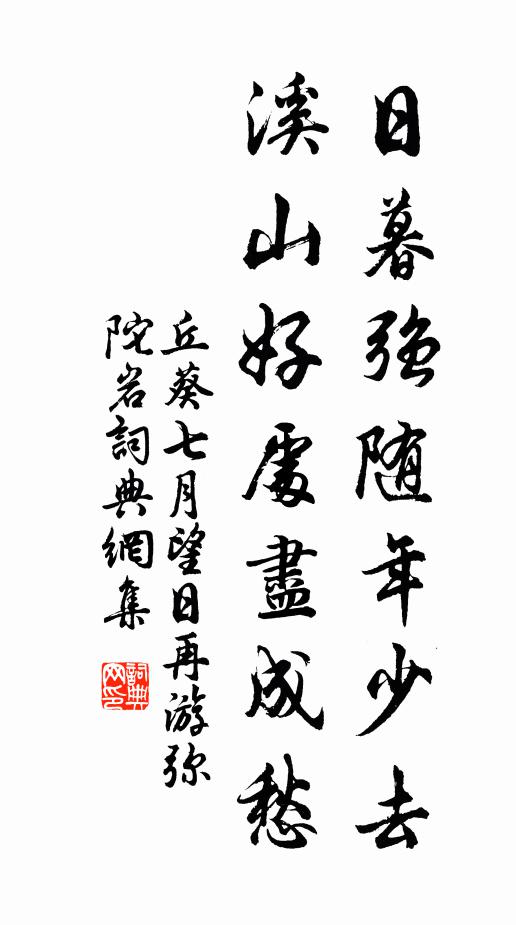 日暮強随年少去
溪山好處盡成愁
丘葵七月望日再游弥
陀岩詞典網集
詞典
网印